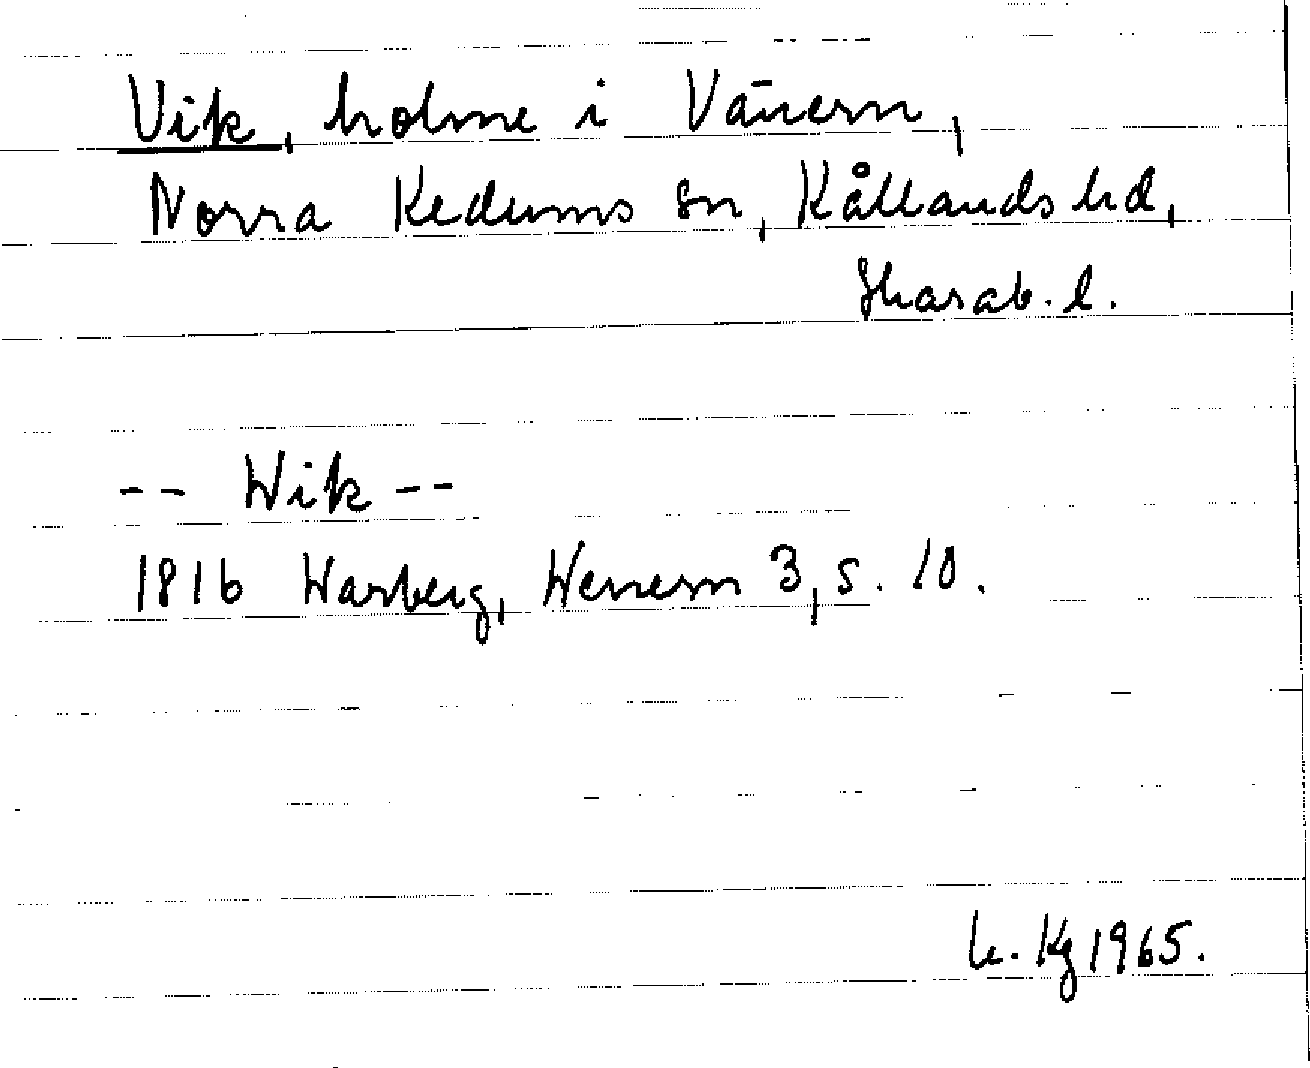 Vik, holme i Vänern,
Norra Kedums sn, Kållands hd,
Skarab. l.
-- Wik --
1816 Warberg, Wenern 3, s. 10.
Kg 1965.